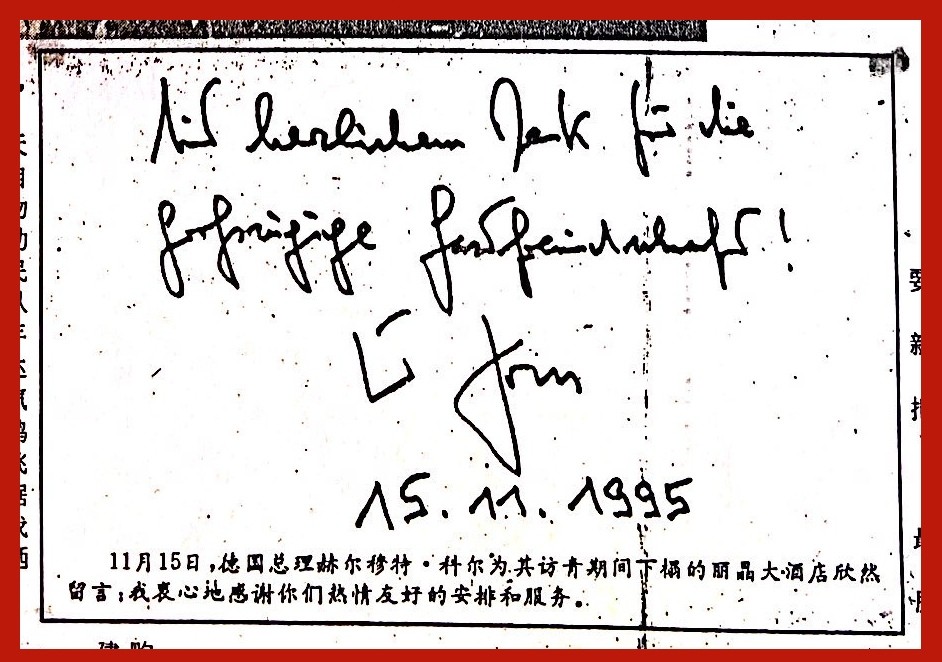 Mit herzlichem Dank für die
großzügige Gastfreundschaft!
15.11.1995
11月15日,德国总理赫尔穆特·科尔为其访青期间下榻的丽晶大酒店欣然
留言:我衷心地感谢你们热情友好的安排和服务。